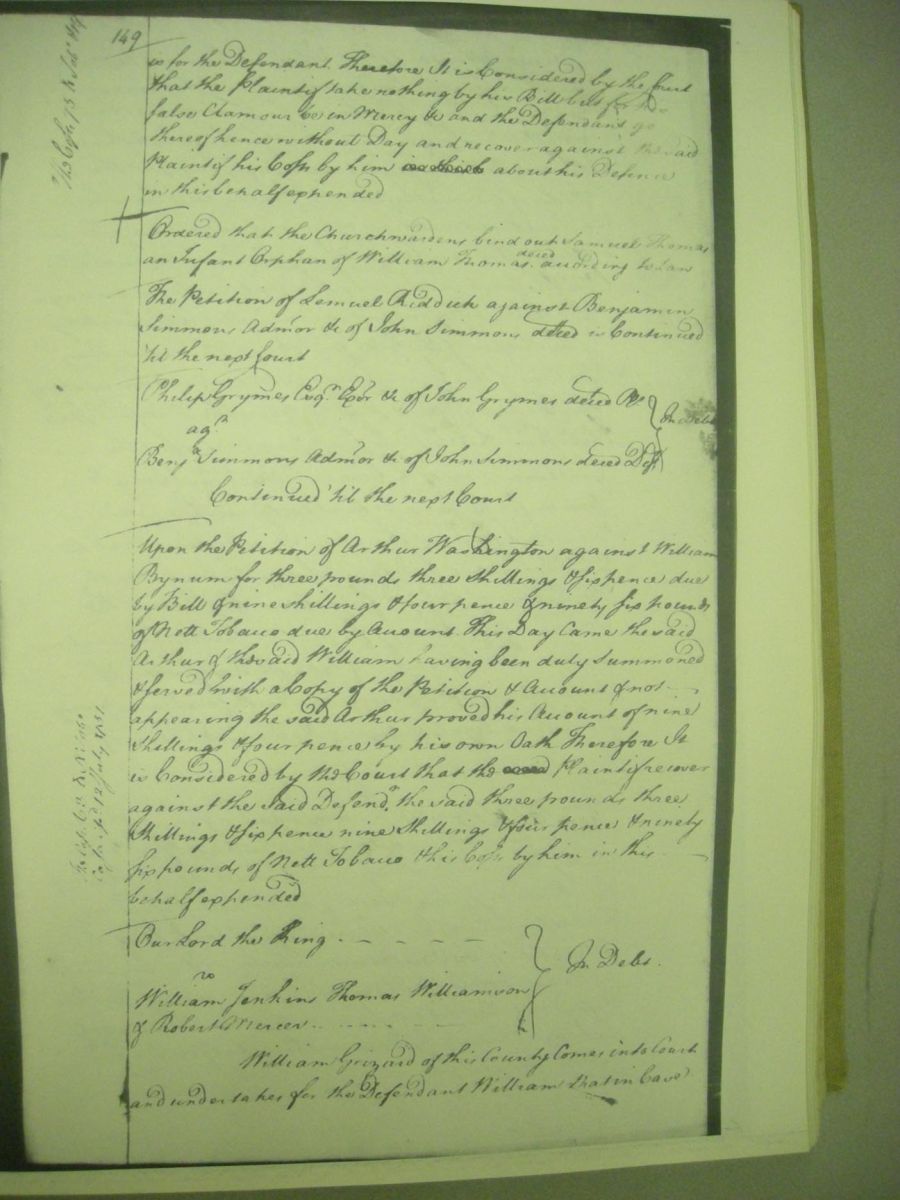 149
is for the Defendant. Therefore It is Considered by the Court
that the Plaintif take nothing by his Bill but for his
false Clamour be in Mercy &c and the Defendant go
thereof hence without Day and recover against the said
Plaintif his Costs by him about his Defence
in this behalf expended
Ordered that the Churchwardens bind out Samuel Thomas
an Infant Orphan of William Thomas deced according to Law
The Petition of Lemuel Riddick against Benjamin
Simmons Admor &c of John Simmons deced is Continued
'til the next Court
Philip Grymes Esqr. Exor &c of John Grymes deced Pl
agt.
In Debt
Benja Simmons Admor &c of John Simmons deced Def
Continued 'til the next Court
Upon the Petition of Arthur Washington against William
Bynum for three pounds three Shillings & six pence due
by Bill & nine shillings & four pence & ninety six pounds
of Nett Tobacco due by Account. This Day Came the said
Arthur & the said William having been duly Summoned
& served with a Copy of the Petition & Account & not
appearing the said Arthur proved his Account of nine
Shillings & four pence by his own Oath Therefore It
is Considered by the Court that the Plaintif recover
against the said Defendt. the said three pounds three
Shillings & six pence nine Shillings & four pence & ninety
six pounds of Nett Tobacco & his Costs by him in this
behalf expended
Our Lord the King
vs
In Debt.
William Jenkins Thomas Williamson
& Robert Mercer
William Grizard of this County Comes into Court
and undertakes for the Defendant William that in Case